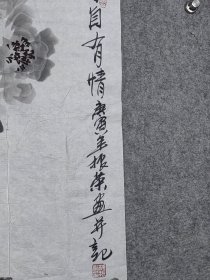 自有情庚寅年根荣画并记